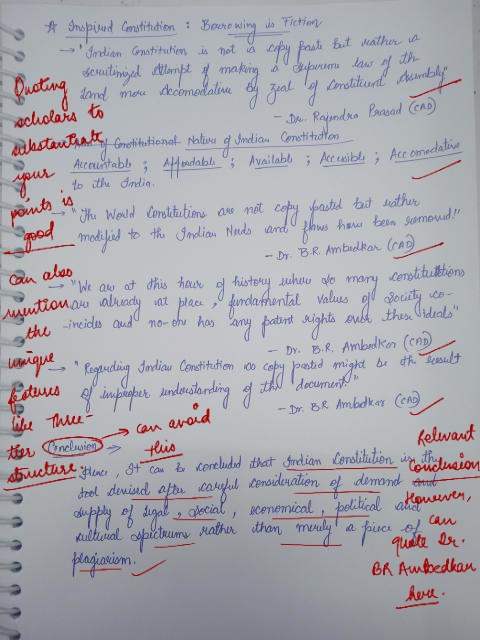 ☆ Inspired Constitution : Borrowing is Fiction
→ "Indian Constitution is not a copy paste but rather a
scrutinized attempt of making a supreme law of the
land more Accomodative By zeal of Constituent Assembly"
- Dr. Rajendra Prasad (CAD)
of Constitutional Nature of Indian Constitution
Accountable ; Affordable ; Available ; Accesible ; Accomodative
to the India.
→ "The World Constitutions are not copy pasted but rather
modified to the Indian Needs and flaws have been removed."
- Dr. B.R. Ambedkar (CAD)
→ "We are at this hour of history where so many constitutions
are already at place, fundamental values of society co-
-incides and no-one has any patent rights over these ideals"
- Dr. B.R. Ambedkar (CAD)
→ "Regarding Indian Constitution as copy pasted might be the result
of improper understanding of the document."
- Dr. B.R Ambedkar (CAD)
Conclusion →
Hence, It can be concluded that Indian Constitution is the
tool devised after careful consideration of demand and
supply of legal, social, economical, political and
cultural spectrums rather than merely a piece of
plagiarism.
Quoting
scholars to
substantiate
your
points is
good
can also
mention
the
unique
features
like Three-
tier
structure.
→ can avoid
this
Relevant
Conclusion
However,
can
quote Dr.
BR Ambedkar
here.